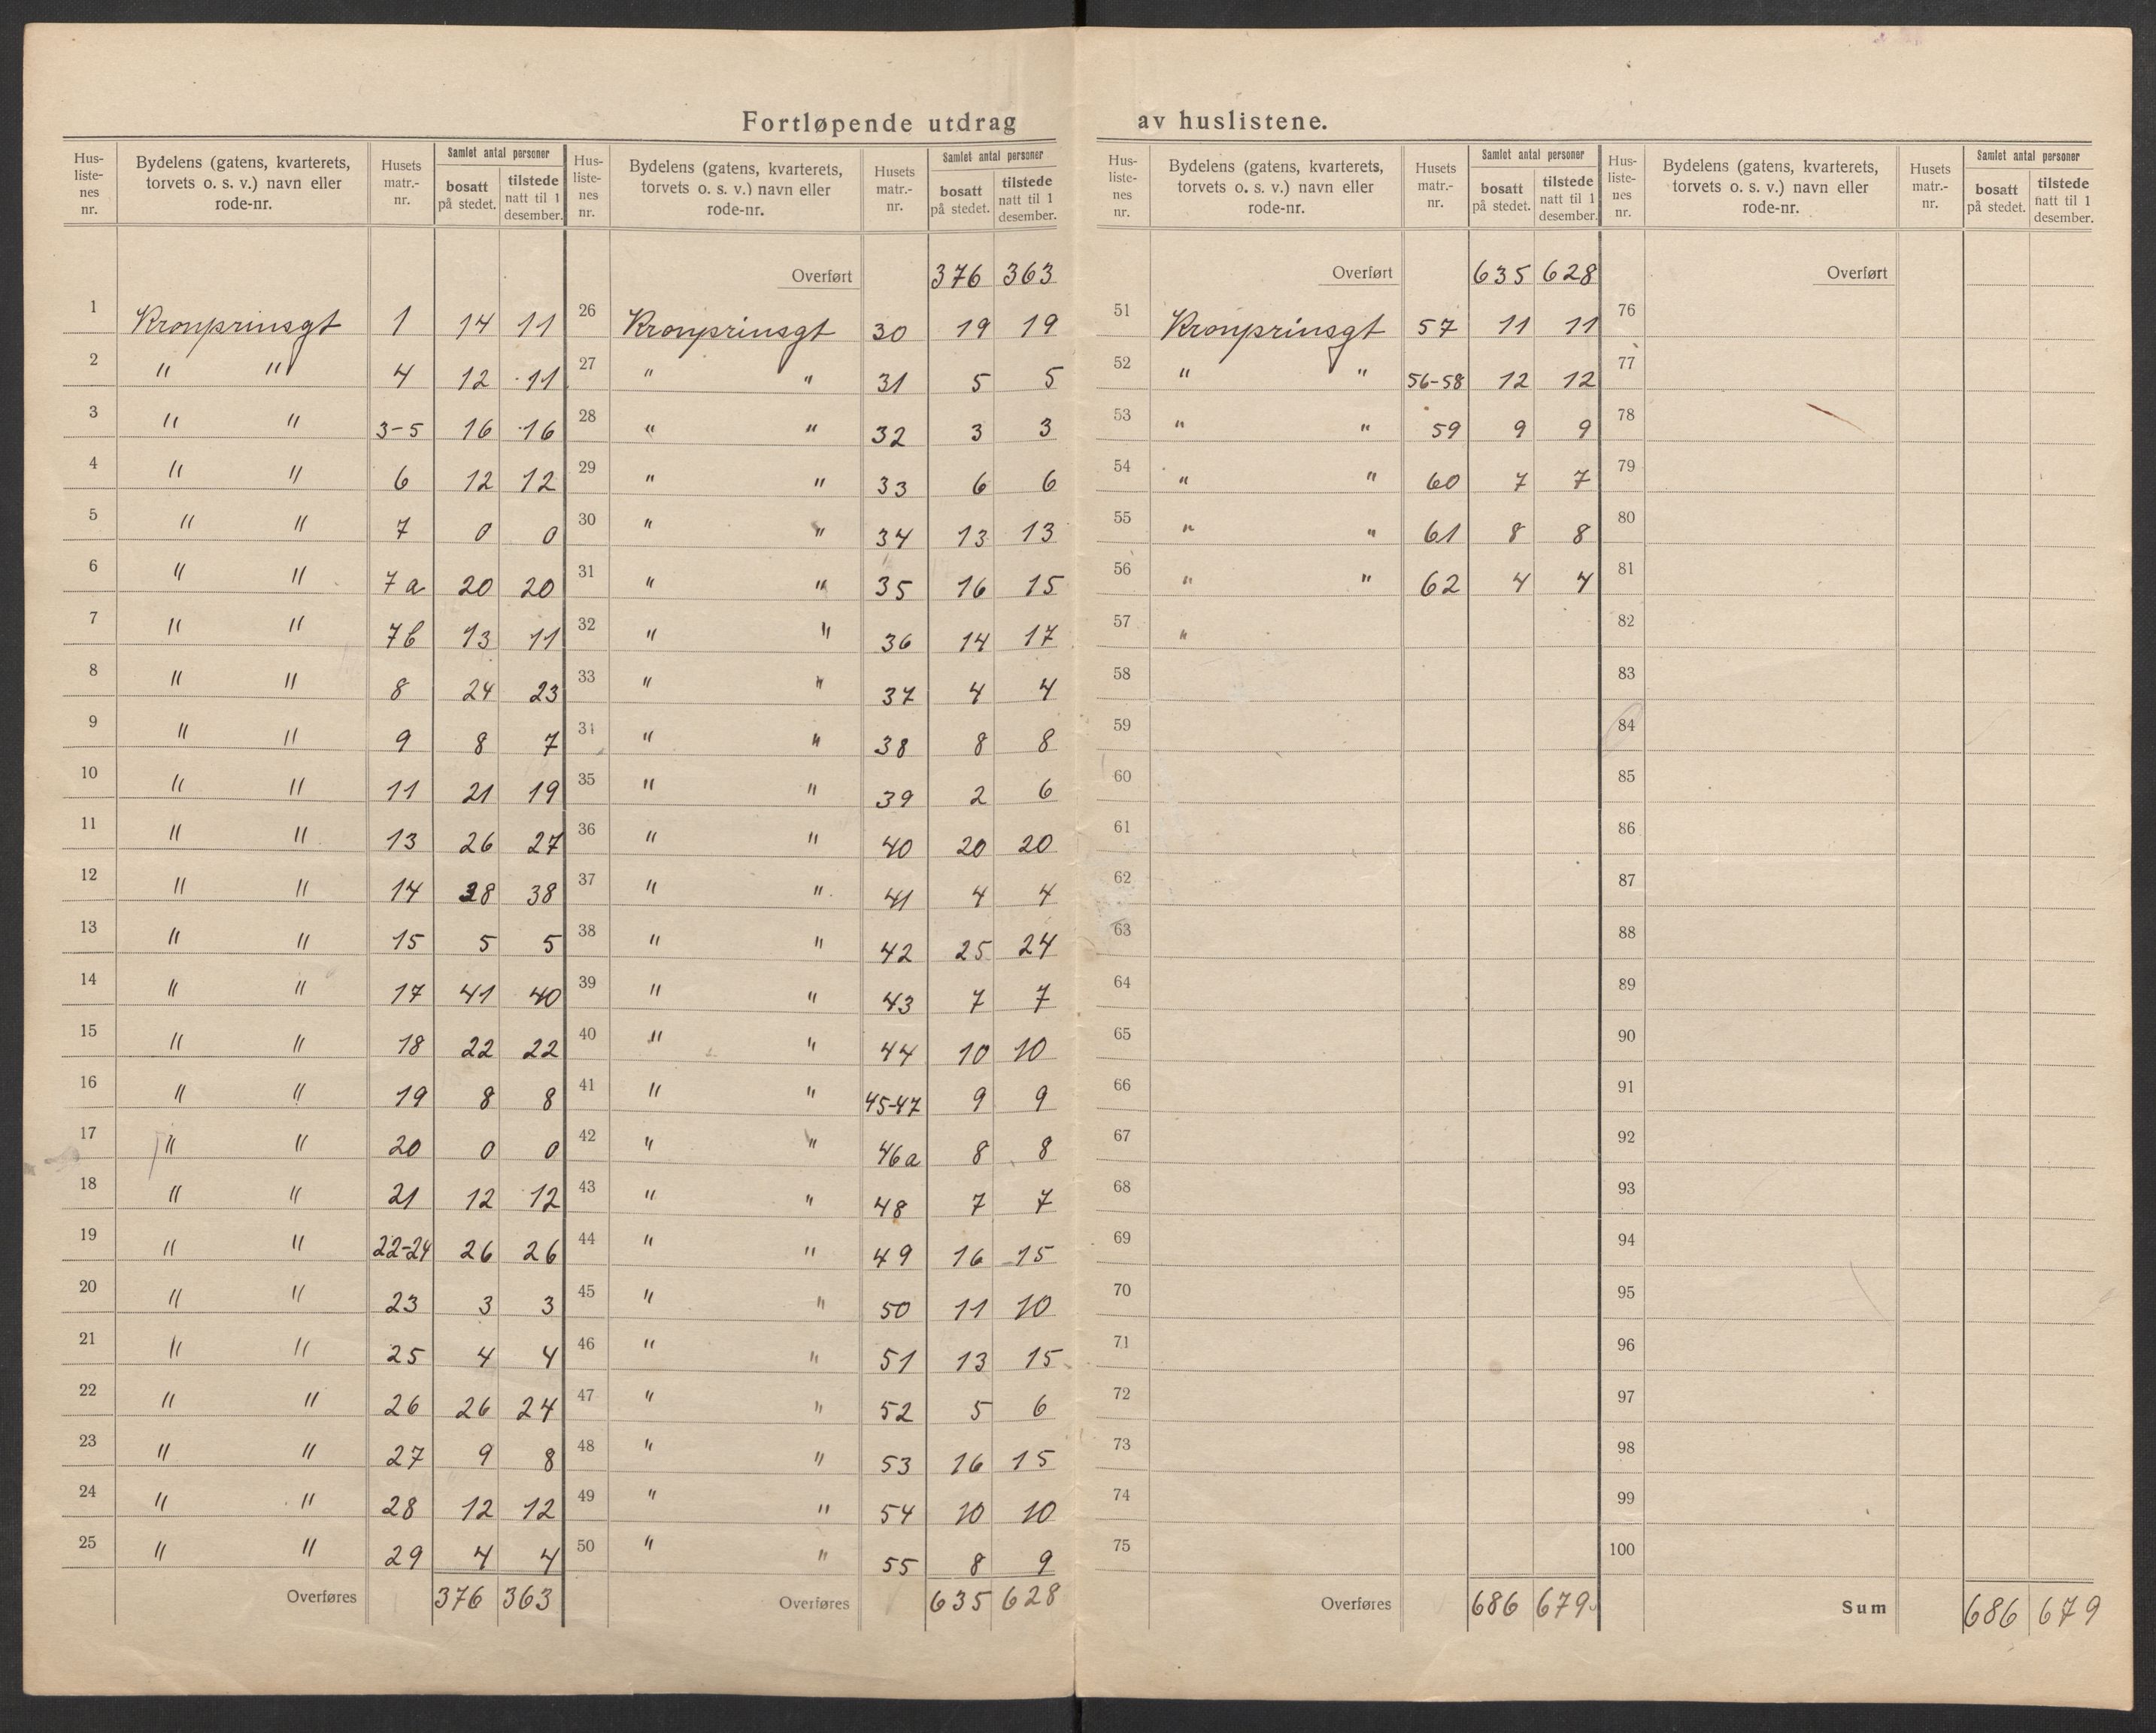 Fortløpende utdrag av huslistene.
Hus-
liste-
nes
nr.
Bydelens (gatens, kvarterets,
torvets o. s. v.) navn eller
rode-nr.
Husets
matr.-
nr.
Samlet antal personer
bosatt
på stedet.
tilstede
natt til 1
desember.
1 Kronprinsgt 1 14 11
2 " " 4 12 11
3 " " 3-5 16 16
4 " " 6 12 12
5 " " 7 0 0
6 " " 7a 20 20
7 " " 7b 13 11
8 " " 8 24 23
9 " " 9 8 7
10 " " 11 21 19
11 " " 13 26 27
12 " " 14 38 38
13 " " 15 5 5
14 " " 17 41 40
15 " " 18 22 22
16 " " 19 8 8
17 " " 20 0 0
18 " " 21 12 12
19 " " 22-24 26 26
20 " " 23 3 3
21 " " 25 4 4
22 " " 26 26 24
23 " " 27 9 8
24 " " 28 12 12
25 " " 29 4 4
Overføres 376 363
Hus-
liste-
nes
nr.
Bydelens (gatens, kvarterets,
torvets o. s. v.) navn eller
rode-nr.
Husets
matr.-
nr.
Samlet antal personer
bosatt
på stedet.
tilstede
natt til 1
desember.
Overført 376 363
26 Kronprinsgt 30 19 19
27 " " 31 5 5
28 " " 32 3 3
29 " " 33 6 6
30 " " 34 13 13
31 " " 35 16 15
32 " " 36 14 17
33 " " 37 4 4
34 " " 38 8 8
35 " " 39 2 6
36 " " 40 20 20
37 " " 41 4 4
38 " " 42 25 24
39 " " 43 7 7
40 " " 44 10 10
41 " " 45-47 9 9
42 " " 46a 8 8
43 " " 48 7 7
44 " " 49 16 15
45 " " 50 11 10
46 " " 51 13 15
47 " " 52 5 6
48 " " 53 16 15
49 " " 54 10 10
50 " " 55 8 9
Overføres 635 628
Hus-
liste-
nes
nr.
Bydelens (gatens, kvarterets,
torvets o. s. v.) navn eller
rode-nr.
Husets
matr.-
nr.
Samlet antal personer
bosatt
på stedet.
tilstede
natt til 1
desember.
Overført 635 628
51 Kronprinsgt 57 11 11
52 " " 56-58 12 12
53 " " 59 9 9
54 " " 60 7 7
55 " " 61 8 8
56 " " 62 4 4
57 "
58
59
60
61
62
63
64
65
66
67
68
69
70
71
72
73
74
75
Overføres 686 679
Hus-
liste-
nes
nr.
Bydelens (gatens, kvarterets,
torvets o. s. v.) navn eller
rode-nr.
Husets
matr.-
nr.
Samlet antal personer
bosatt
på stedet.
tilstede
natt til 1
desember.
Overført
76
77
78
79
80
81
82
83
84
85
86
87
88
89
90
91
92
93
94
95
96
97
98
99
100
Sum 686 679